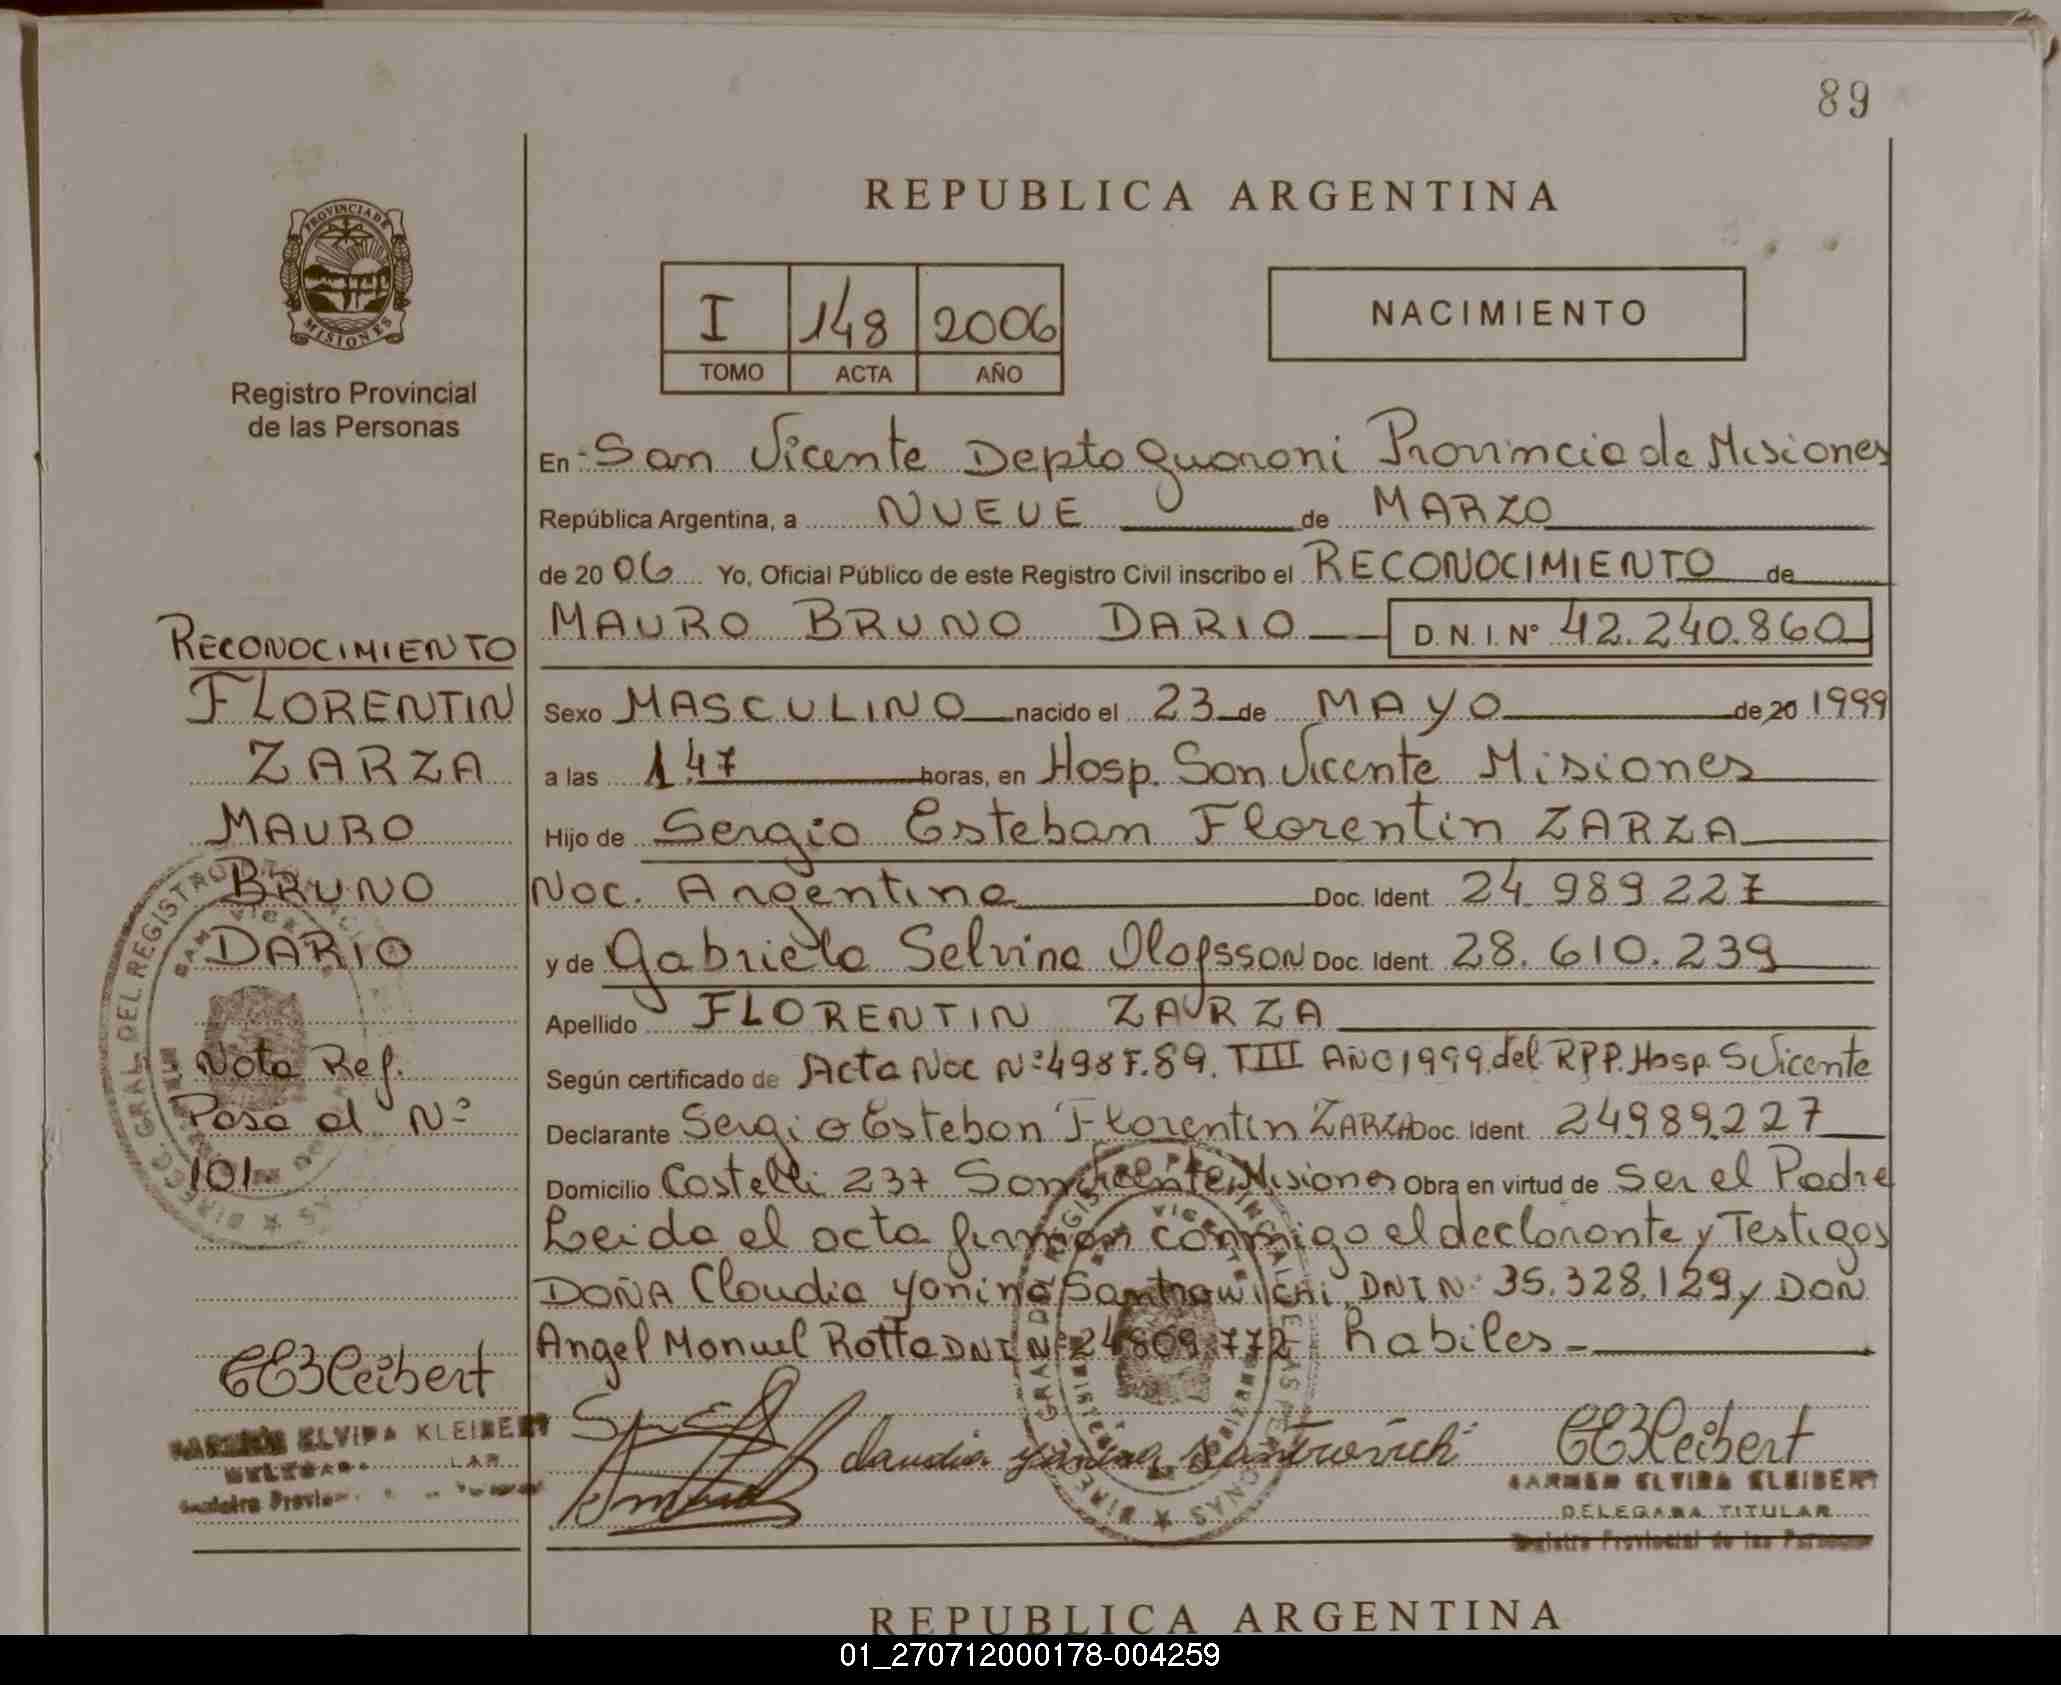 89
REPUBLICA ARGENTINA
PROVINCIA DE
MISIONES
Registro Provincial
de las Personas
I 148 2006
TOMO ACTA AÑO
NACIMIENTO
En San Vicente Depto Guarani Provincia de Misiones
República Argentina, a NUEVE de MARZO
de 20 06 Yo, Oficial Público de este Registro Civil inscribo el RECONOCIMIENTO de
MAURO BRUNO DARIO D.N.I. Nº 42.240.860
Sexo MASCULINO nacido el 23 de MAYO de 20 1999
a las 1.47 horas, en Hosp. San Vicente Misiones
Hijo de Sergio Esteban Florentin ZARZA
Nac. Argentina Doc. Ident. 24.989.227
y de Gabriela Selvina Olofsson Doc. Ident. 28.610.239
Apellido FLORENTIN ZARZA
Según certificado de Acta Nac Nº 498 F.89. TIII AÑO 1999 del RPP. Hosp. S Vicente
Declarante Sergio Esteban Florentin ZARZA Doc. Ident. 24989227
Domicilio Costelli 237 San Vicente, Misiones Obra en virtud de Ser el Padre
Leida el acta firman conmigo el declarante y Testigos
DOÑA Claudia Yanina Santrowichi DNI Nº 35.328.129 y DON
Angel Manuel Rotta DNI Nº 24809.772 habiles
RECONOCIMIENTO
FLORENTIN
ZARZA
MAURO
BRUNO
DARIO
Nota Ref.
Pasa al Nº
101
CEKleibert
ELVIRA KLEIBERT
Claudia Yanina Santrovichi
CEKleibert
CARMEN ELVIRA KLEIBERT
DELEGADA TITULAR
Registro Provincial de las Personas
REPUBLICA ARGENTINA
01_270712000178-004259